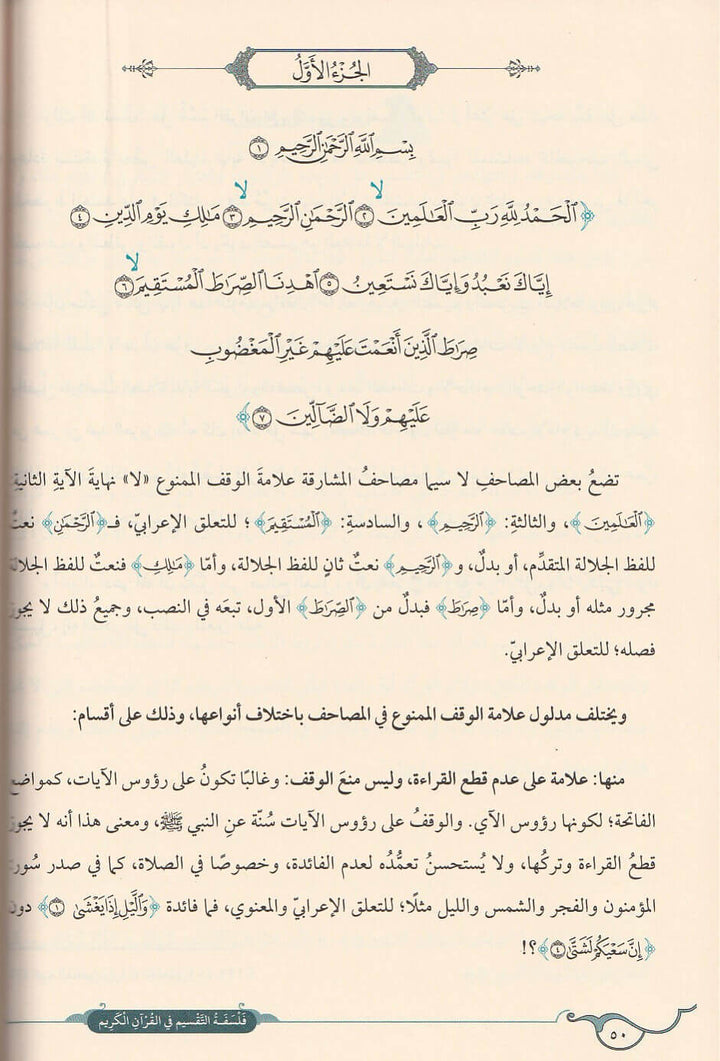 الجُزْءُ الأَوَّلُ
بِسْمِ ٱللَّهِ ٱلرَّحْمَٰنِ ٱلرَّحِيمِ ١
﴿ ٱلْحَمْدُ لِلَّهِ رَبِّ ٱلْعَٰلَمِينَ ٢ لا ٱلرَّحْمَٰنِ ٱلرَّحِيمِ ٣ لا مَٰلِكِ يَوْمِ ٱلدِّينِ ٤
إِيَّاكَ نَعْبُدُ وَإِيَّاكَ نَسْتَعِينُ ٥ ٱهْدِنَا ٱلصِّرَٰطَ ٱلْمُسْتَقِيمَ ٦ لا
صِرَٰطَ ٱلَّذِينَ أَنْعَمْتَ عَلَيْهِمْ غَيْرِ ٱلْمَغْضُوبِ
عَلَيْهِمْ وَلَا ٱلضَّآلِّينَ ٧ ﴾
تضعُ بعض المصاحفِ لا سيما مصاحفُ المشارقة علامةَ الوقف الممنوع «لا» نهايةَ الآيةِ الثانيةِ:
﴿ٱلْعَٰلَمِينَ﴾، والثالثةِ: ﴿ٱلرَّحِيمِ﴾، والسادسةِ: ﴿ٱلْمُسْتَقِيمَ﴾؛ للتعلق الإعرابيّ، فـ﴿ٱلرَّحْمَٰنِ﴾ نعتٌ
للفظ الجلالة المتقدِّم، أو بدلٌ، و﴿ٱلرَّحِيمِ﴾ نعتٌ ثانٍ للفظ الجلالة، وأمّا ﴿مَٰلِكِ﴾ فنعتٌ للفظ الجلالة
مجرور مثله أو بدلٌ، وأمّا ﴿صِرَٰطَ﴾ فبدلٌ من ﴿ٱلصِّرَٰطَ﴾ الأول، تبعَه في النصب، وجميعُ ذلك لا يجوز
فصله؛ للتعلق الإعرابيّ.
ويختلف مدلول علامة الوقف الممنوع في المصاحف باختلاف أنواعها، وذلك على أقسام:
منها: علامة على عدم قطع القراءة، وليس منعَ الوقف: وغالبًا تكونُ على رؤوس الآيات، كمواضع
الفاتحة؛ لكونها رؤوس الآي. والوقفُ على رؤوس الآيات سُنّة عنِ النبي ﷺ، ومعنى هذا أنه لا يجوز
قطعُ القراءة وتركُها، ولا يُستحسنُ تعمُّدُه لعدم الفائدة، وخصوصًا في الصلاة، كما في صدر سُورة
المؤمنون والفجر والشمس والليل مثلًا؛ للتعلق الإعرابيّ والمعنوي، فما فائدة ﴿وَٱلَّيْلِ إِذَا يَغْشَىٰ ١﴾ دون
﴿إِنَّ سَعْيَكُمْ لَشَتَّىٰ ٤﴾؟!
فَلْسَفَةُ التَّقْسِيمِ فِي القُرْآنِ الْكَرِيمِ
٥٠